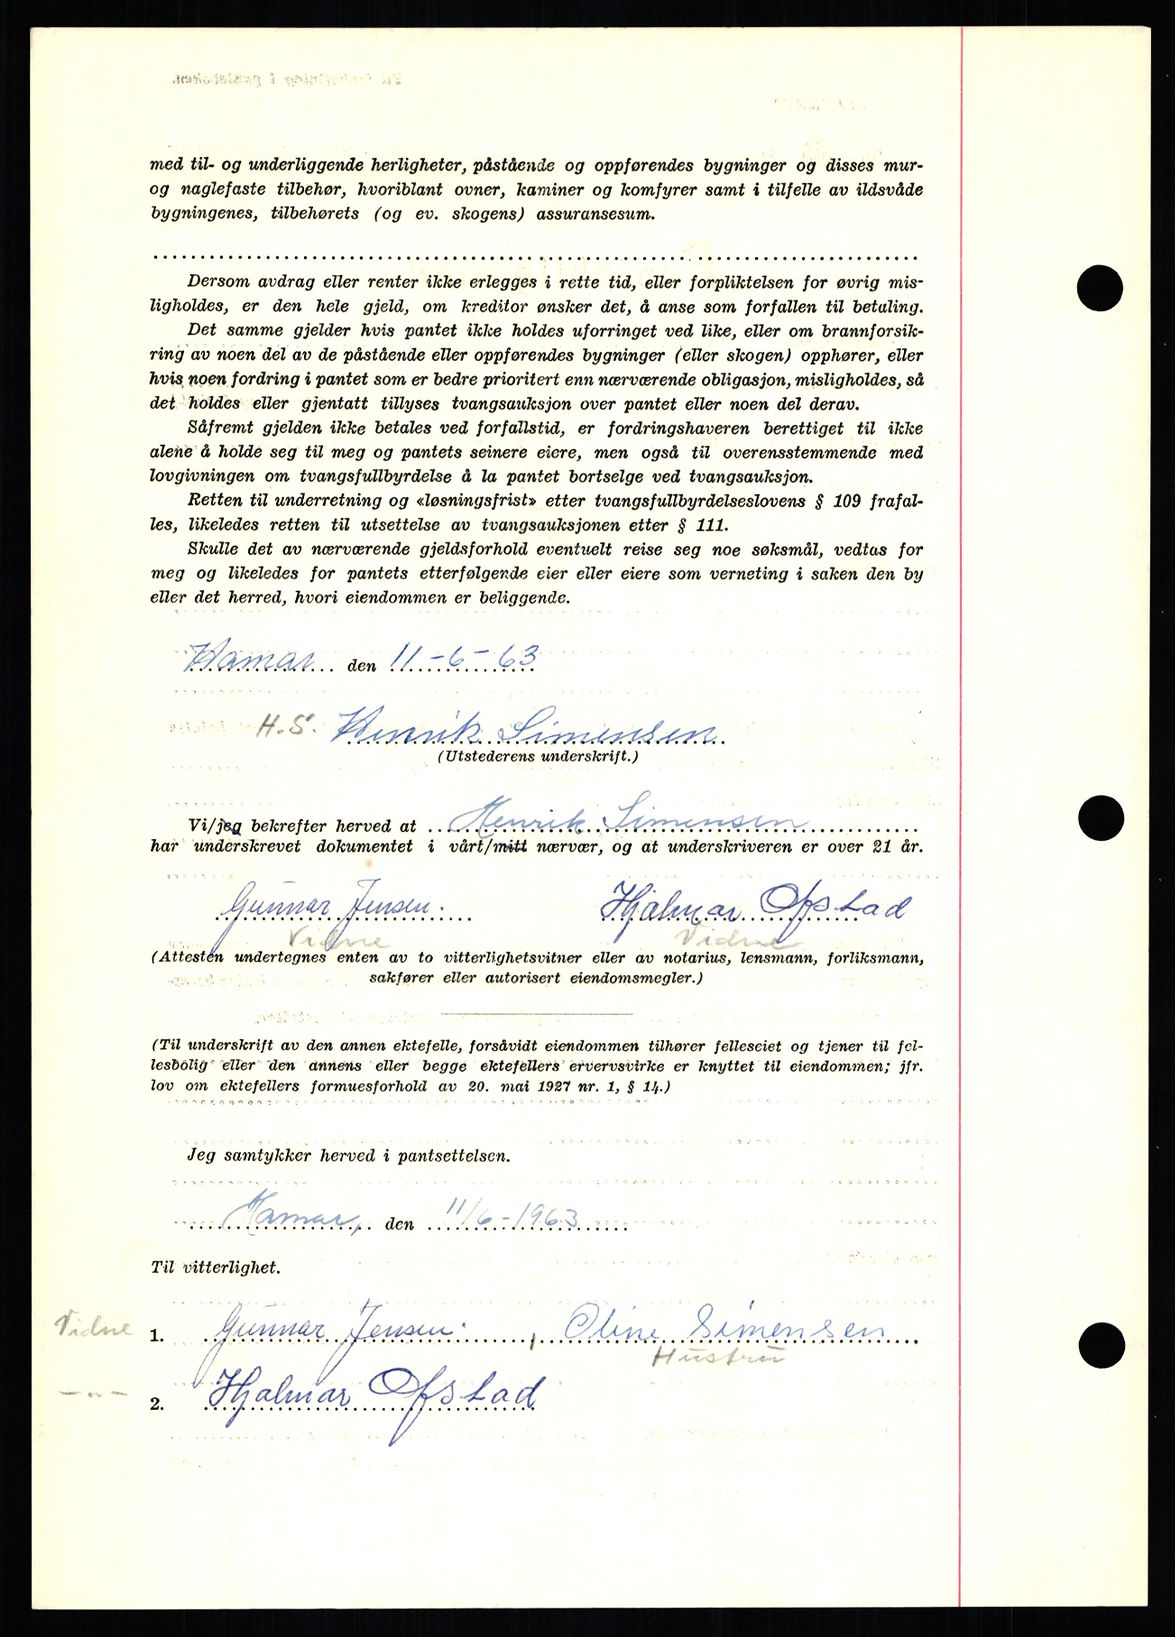 med til- og underliggende herligheter, påstående og oppførendes bygninger og disses mur-
og naglefaste tilbehør, hvoriblant ovner, kaminer og komfyrer samt i tilfelle av ildsvåde
bygningenes, tilbehørets (og ev. skogens) assuransesum.
Dersom avdrag eller renter ikke erlegges i rette tid, eller forpliktelsen for øvrig mis-
ligholdes, er den hele gjeld, om kreditor ønsker det, å anse som forfallen til betaling.
Det samme gjelder hvis pantet ikke holdes uforringet ved like, eller om brannforsik-
ring av noen del av de påstående eller oppførendes bygninger (eller skogen) opphører, eller
hvis noen fordring i pantet som er bedre prioritert enn nærværende obligasjon, misligholdes, så
det holdes eller gjentatt tillyses tvangsauksjon over pantet eller noen del derav.
Såfremt gjelden ikke betales ved forfallstid, er fordringshaveren berettiget til ikke
alene å holde seg til meg og pantets seinere eiere, men også til overensstemmende med
lovgivningen om tvangsfullbyrdelse å la pantet bortselge ved tvangsauksjon.
Retten til underretning og «løsningsfrist» etter tvangsfullbyrdelseslovens § 109 frafal-
les, likeledes retten til utsettelse av tvangsauksjonen etter § 111.
Skulle det av nærværende gjeldsforhold eventuelt reise seg noe søksmål, vedtas for
meg og likeledes for pantets etterfølgende eier eller eiere som verneting i saken den by
eller det herred, hvori eiendommen er beliggende.
Hamar den 11-6-63
H.S. Henrik Simensen
(Utstederens underskrift.)
Vi/jeg bekrefter herved at Henrik Simensen
har underskrevet dokumentet i vårt/mitt nærvær, og at underskriveren er over 21 år.
Gunnar Jensen. Hjalmar Ofstad
Vidne Vidne
(Attesten undertegnes enten av to vitterlighetsvitner eller av notarius, lensmann, forliksmann,
sakfører eller autorisert eiendomsmegler.)
(Til underskrift av den annen ektefelle, forsåvidt eiendommen tilhører felleseiet og tjener til fel-
lesbolig eller den annens eller begge ektefellers ervervsvirke er knyttet til eiendommen; jfr.
lov om ektefellers formuesforhold av 20. mai 1927 nr. 1, § 14.)
Jeg samtykker herved i pantsettelsen.
Hamar, den 11/6-1963
Til vitterlighet.
Vidne 1. Gunnar Jensen. , Oline Simensen
Hustru
—"— 2. Hjalmar Ofstad